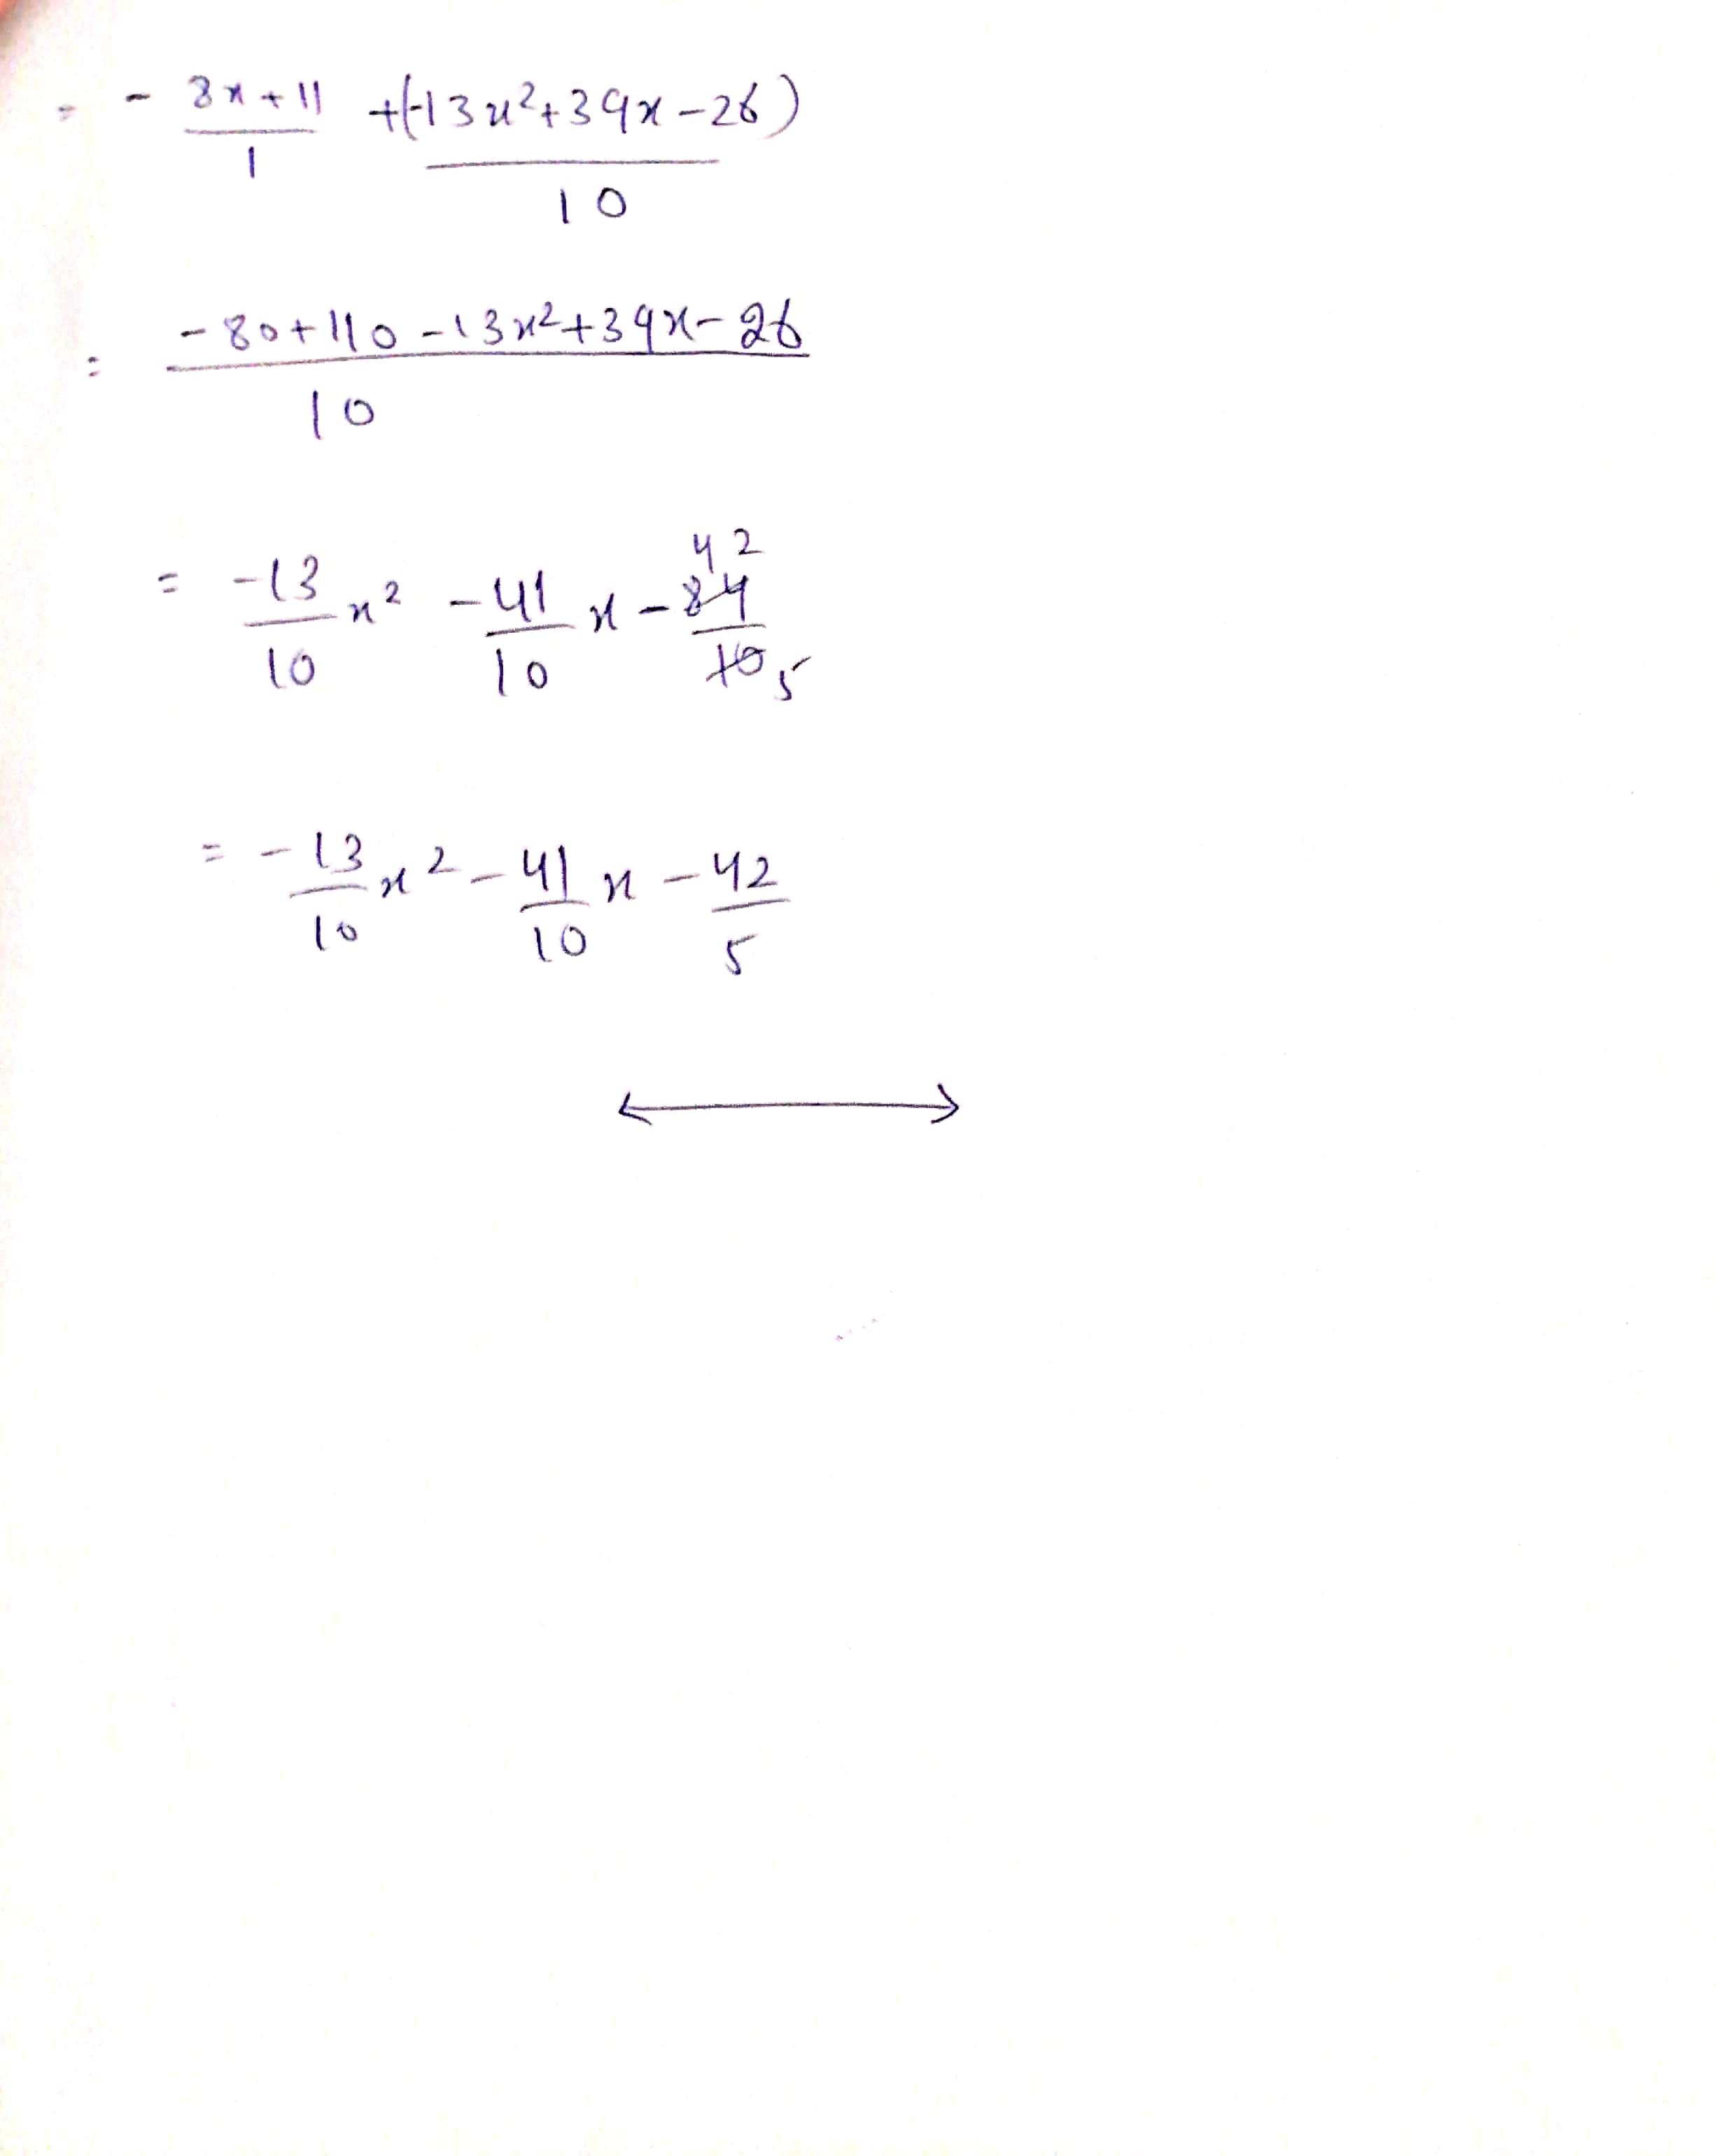 = - 8x+11/1 +(-13x²+39x-26)/10
= -80+110-13x²+39x-26/10
= -13/10 x² -41/10 x - 84/10 42 5
= -13/10 x² - 41/10 x - 42/5